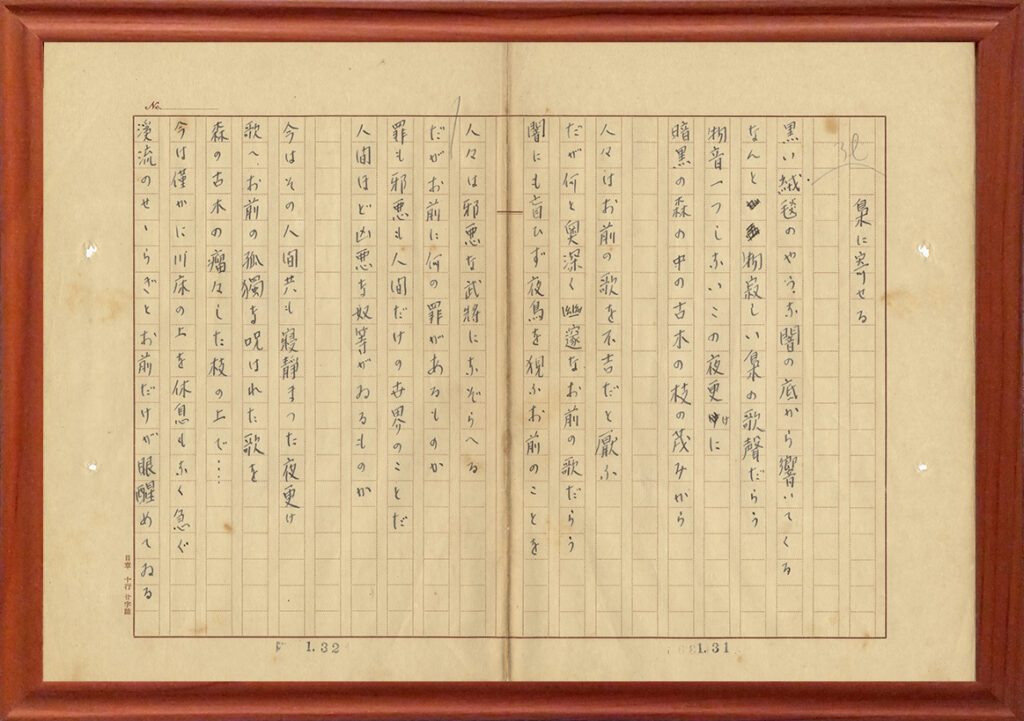 No.
梟に寄せる
黒い絨毯のやうな闇の底から響いてくる
なんと物寂しい梟の歌聲だらう
物音一つしないこの夜更けに
暗黒の森の中の古木の枝の茂みから
人々はお前の歌を不吉だと厭ふ
だが何と奥深く幽邃なお前の歌だらう
闇にも盲ひず夜鳥を覗ふお前のことを
人々は邪悪な武将になぞらへる
だがお前に何の罪があるものか
罪も邪悪も人間だけの世界のことだ
人間ほど凶悪な奴等がゐるものか
今はその人間共も寝静まつた夜更け
歌へ、お前の孤獨な呪はれた歌を
森の古木の瘤々した枝の上で……
今は僅かに川床の上を休息もなく急ぐ
渓流のせゝらぎとお前だけが眼醒めてゐる
1.31
1.32